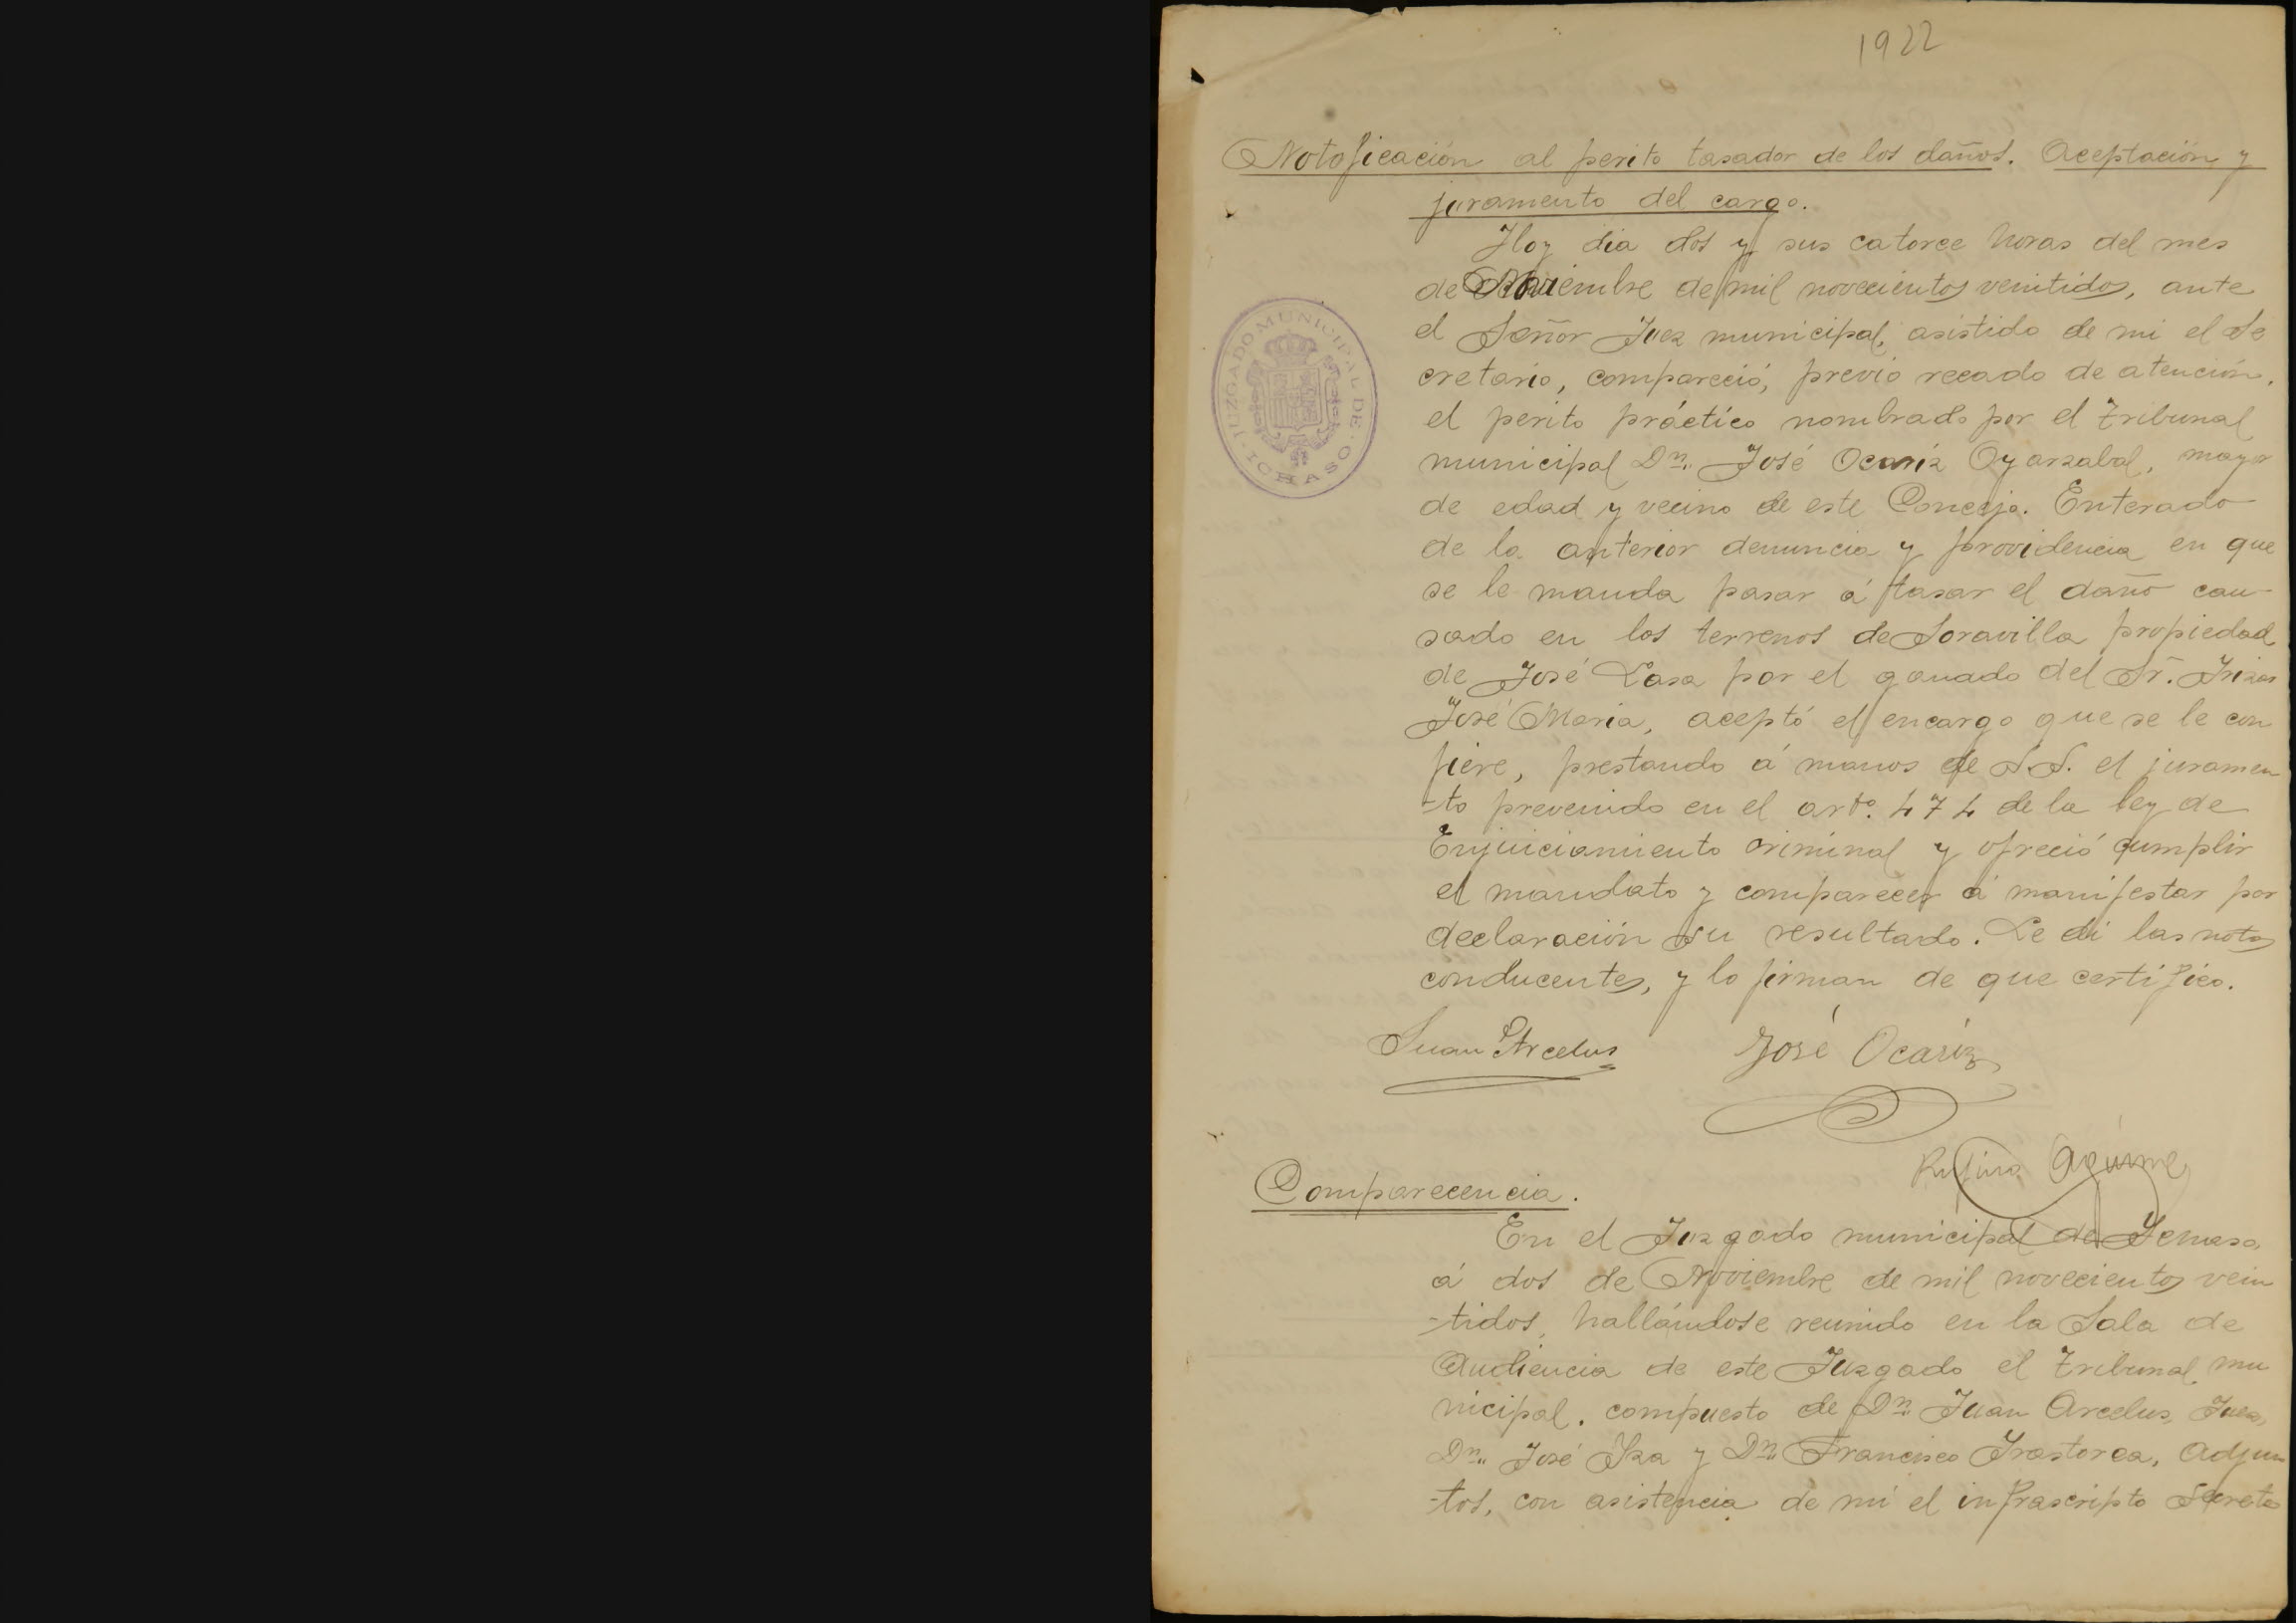 1922
Notoficación al perito tasador de los daños. Aceptación y
juramento del cargo.
Hoy dia dos y sus catorce horas del mes
de Noviembre de mil novecientos veintidos, ante
el Señor Juez municipal, asistido de mi el Se
cretario, compareció, previo recado de atención,
el perito práctico nombrado por el tribunal
municipal Dn. José Ocariz Oyarzabal, mayor
de edad y vecino de este Concejo. Enterado
de la anterior denuncia y providencia en que
se le manda pasar á tasar el daño cau-
sado en los terrenos de Soravilla propiedad
de José Lasa por el ganado del Sr. Irizar
José Maria, aceptó el encargo que se le con
fiere, prestando á manos de S.S. el juramen
-to prevenido en el arto. 474 de la ley de
Enjuiciamiento criminal y ofreció cumplir
el mandato y comparecer á manifestar por
declaración su resultado. Le di las notas
conducentes, y lo firman de que certifico.
JUZGADO MUNICIPAL DE ICHASO
Juan Arcelus José Ocariz
Rufino Aguirre
Comparecencia.
En el Juzgado municipal de
á dos de Noviembre de mil novecientos vein
-tidos, hallándose reunido en la Sala de
Audiencia de este Juzgado el tribunal mu
nicipal. compuesto de Dn. Juan Arcelus, Juez,
Dn. José Iza y Dn. Francisco Irastorza, Adjun
-tos, con asistencia de mi el infrascripto Secreta